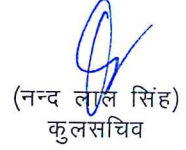 (नन्द लाल सिंह)
कुलसचिव